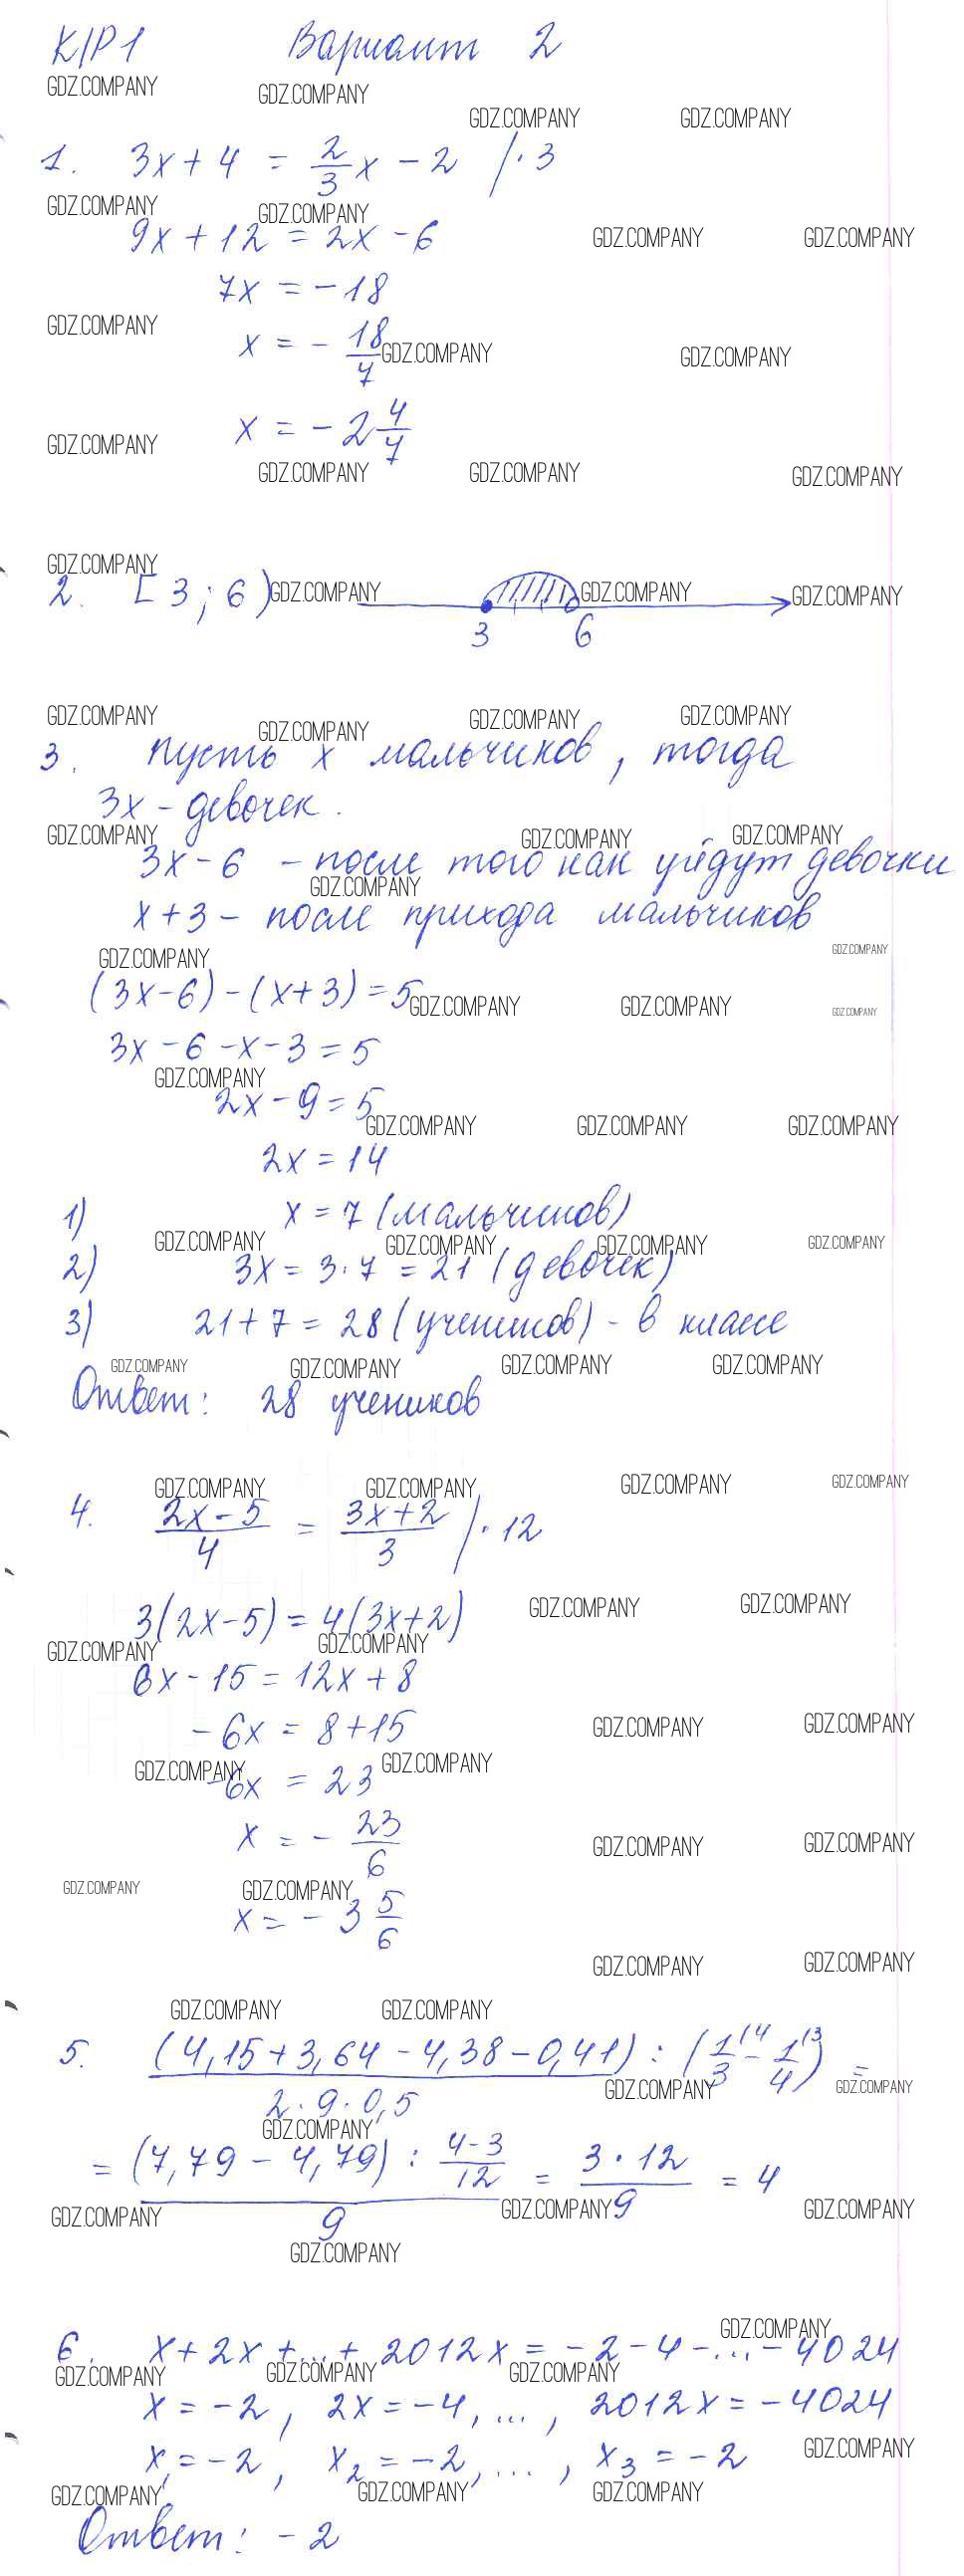 К/Р1 Вариант 2
1. 3x + 4 = 2/3 x - 2 / · 3
9x + 12 = 2x - 6
7x = -18
x = - 18/7
x = -2 4/7
2. [3; 6)
3 6
3. Пусть x мальчиков, тогда
3x - девочек.
3x - 6 - после того как уйдут девочки
x + 3 - после прихода мальчиков
(3x - 6) - (x + 3) = 5
3x - 6 - x - 3 = 5
2x - 9 = 5
2x = 14
1) x = 7 (мальчиков)
2) 3x = 3 · 7 = 21 (девочек)
3) 21 + 7 = 28 (учеников) - в классе
Ответ: 28 учеников
4. (2x - 5)/4 = (3x + 2)/3 / · 12
3(2x - 5) = 4(3x + 2)
6x - 15 = 12x + 8
-6x = 8 + 15
-6x = 23
x = - 23/6
x = -3 5/6
5. (4,15 + 3,64 - 4,38 - 0,41) : (1/3 \4 - 1/4 \3) / 2 · 9 · 0,5 =
= (7,79 - 4,79) : (4-3)/12 / 9 = 3 · 12 / 9 = 4
6. x + 2x + ... + 2012x = -2 - 4 - ... - 4024
x = -2, 2x = -4, ..., 2012x = -4024
x₁ = -2, x₂ = -2, ..., x₃ = -2
Ответ: -2
GDZ.COMPANY